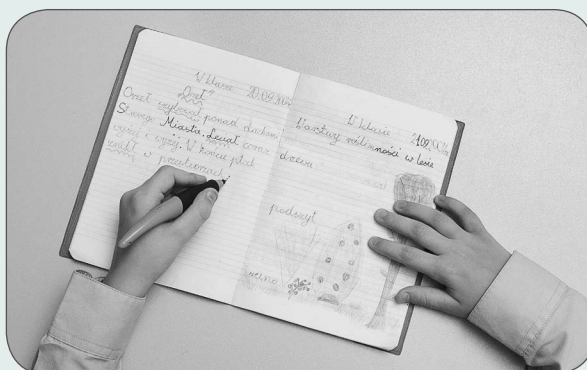 W klasie 20.09.
Orzeł
Orzeł wyleciał ponad dachami
Starego Miasta. Leciał coraz
wyżej i wyżej. W końcu ptak
znikł w przestworzach.
W klasie 21.09.
Warstwy roślinności w lesie
drzewa
podszyt
runo